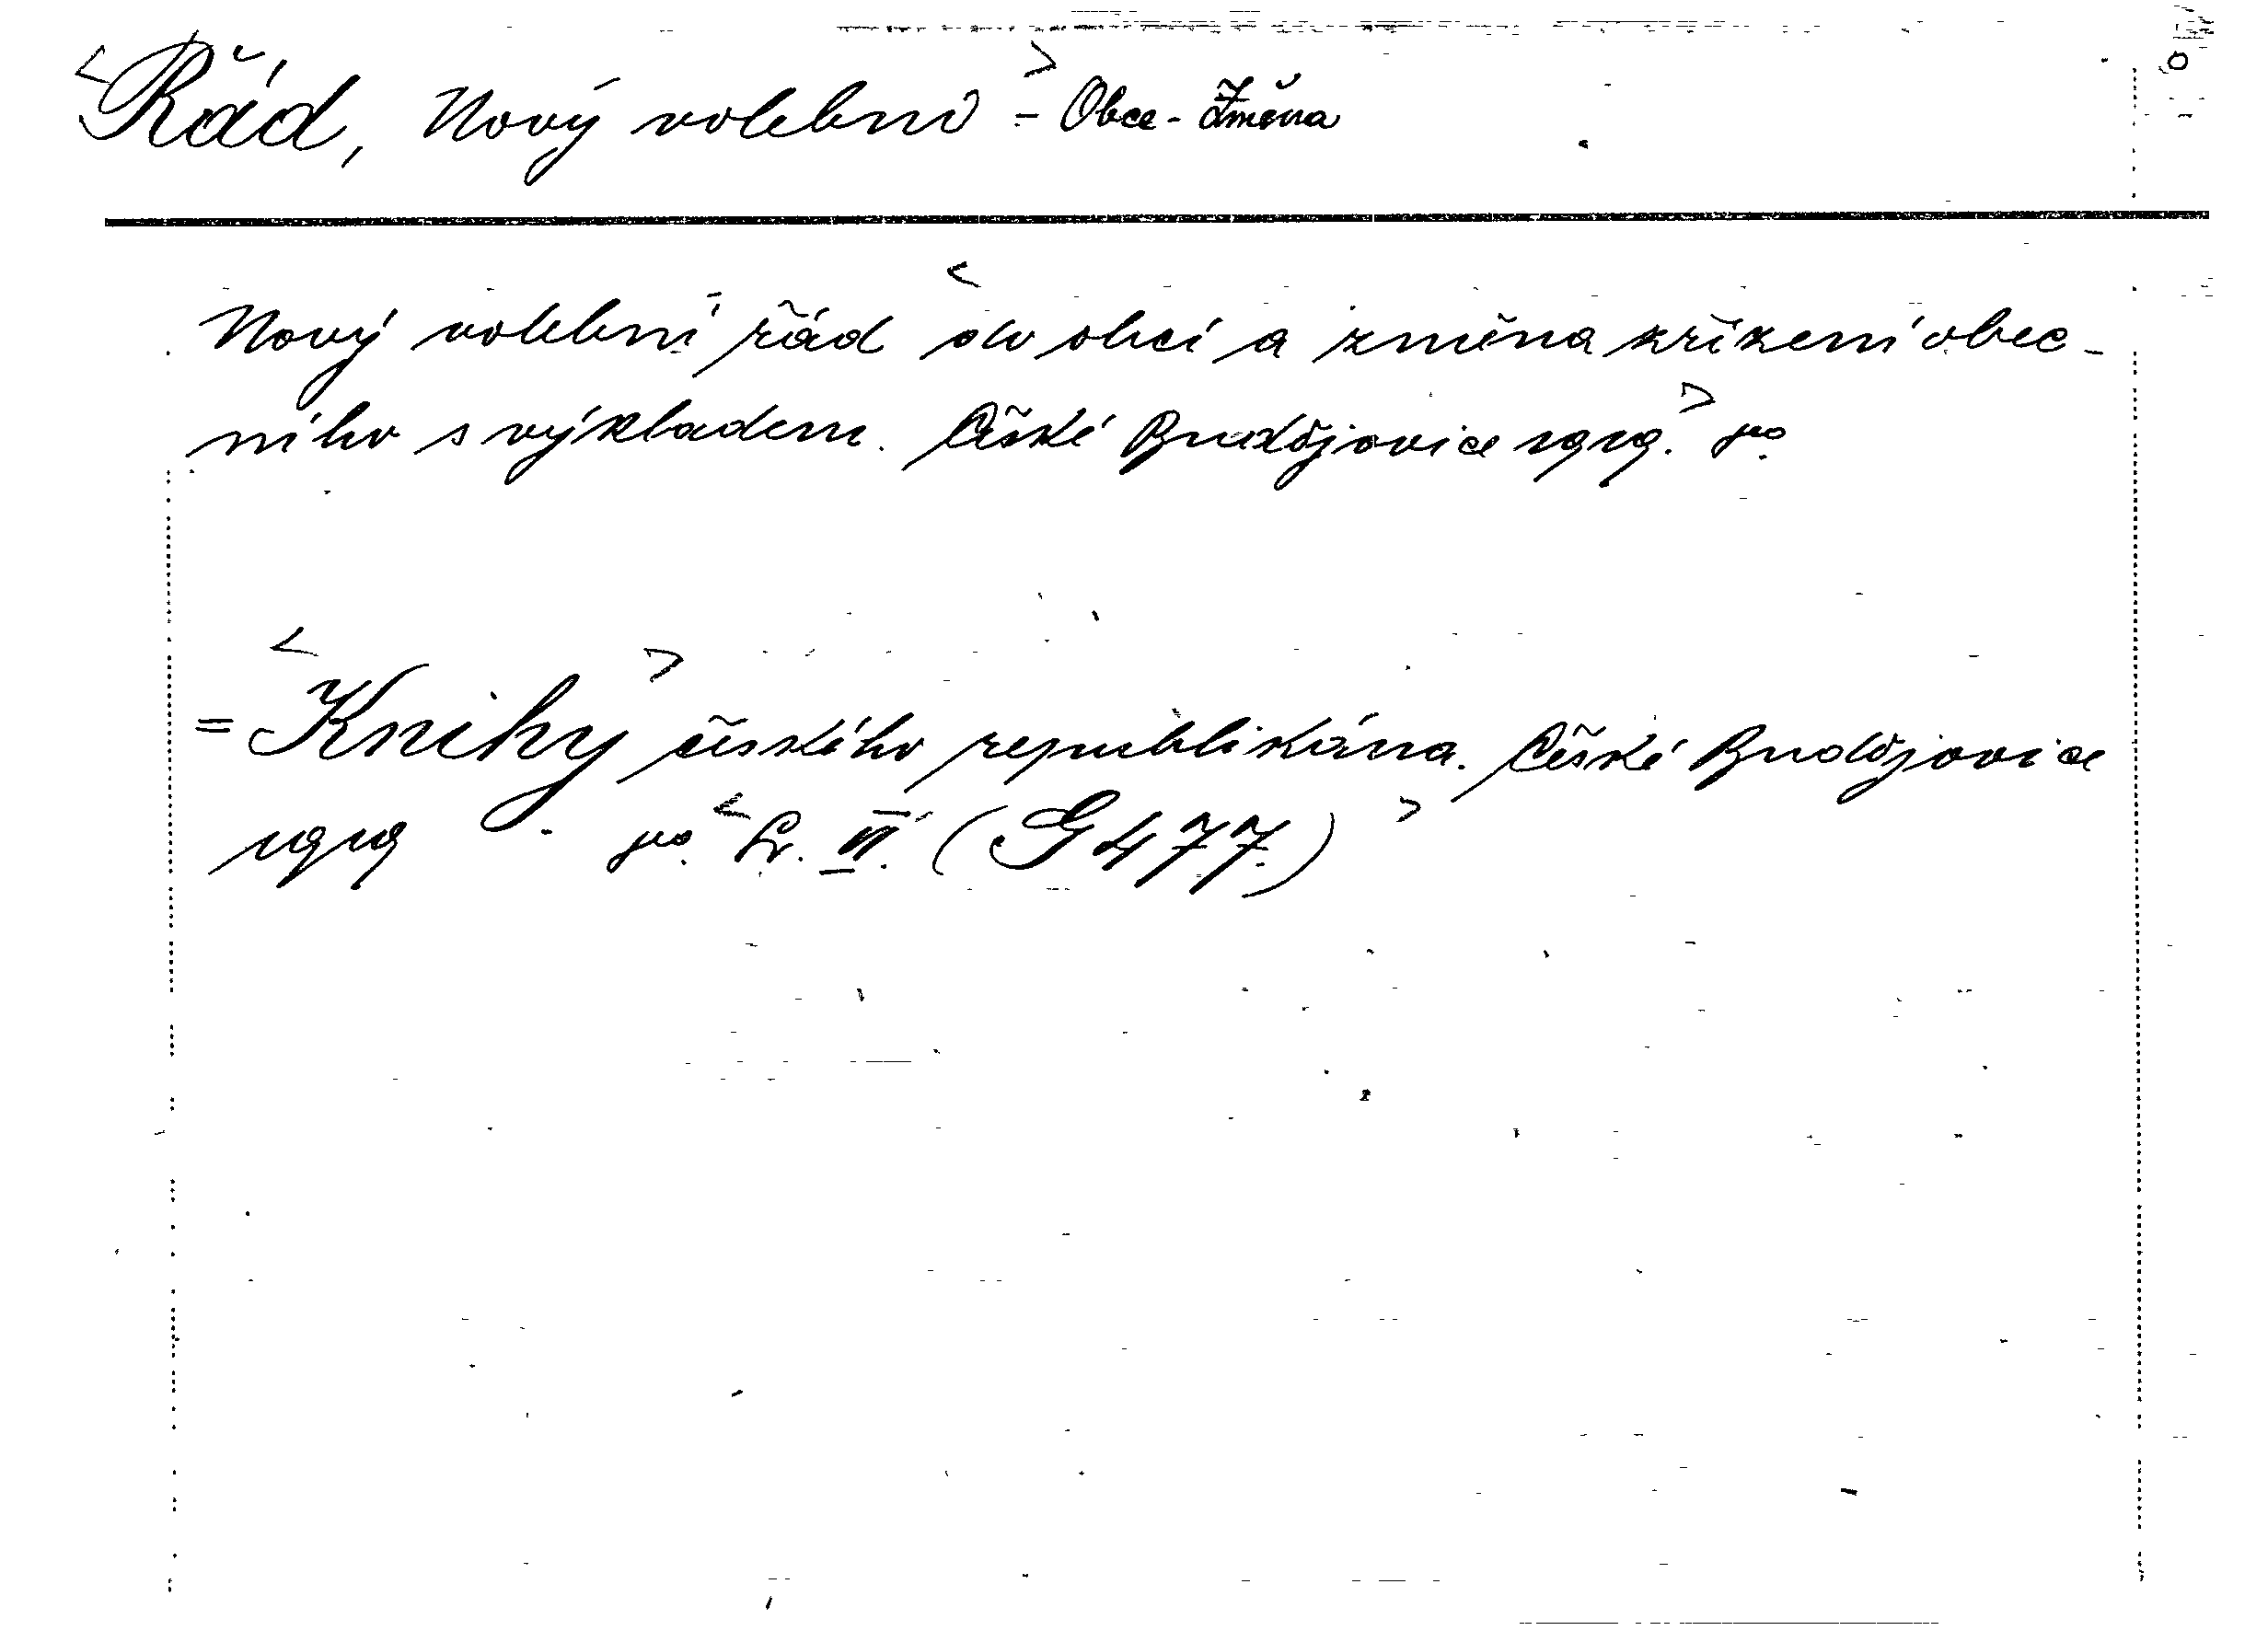 <Řád, Nový volební> - Obce - Změna
Nový volební řád <do obcí a změna zřízení obec-
ního s výkladem. České Budějovice 1919.> 8º.
= <Knihy> českého republikána. České Budějovice
1919 - 8º. <Sv. VI. (G 477.)>